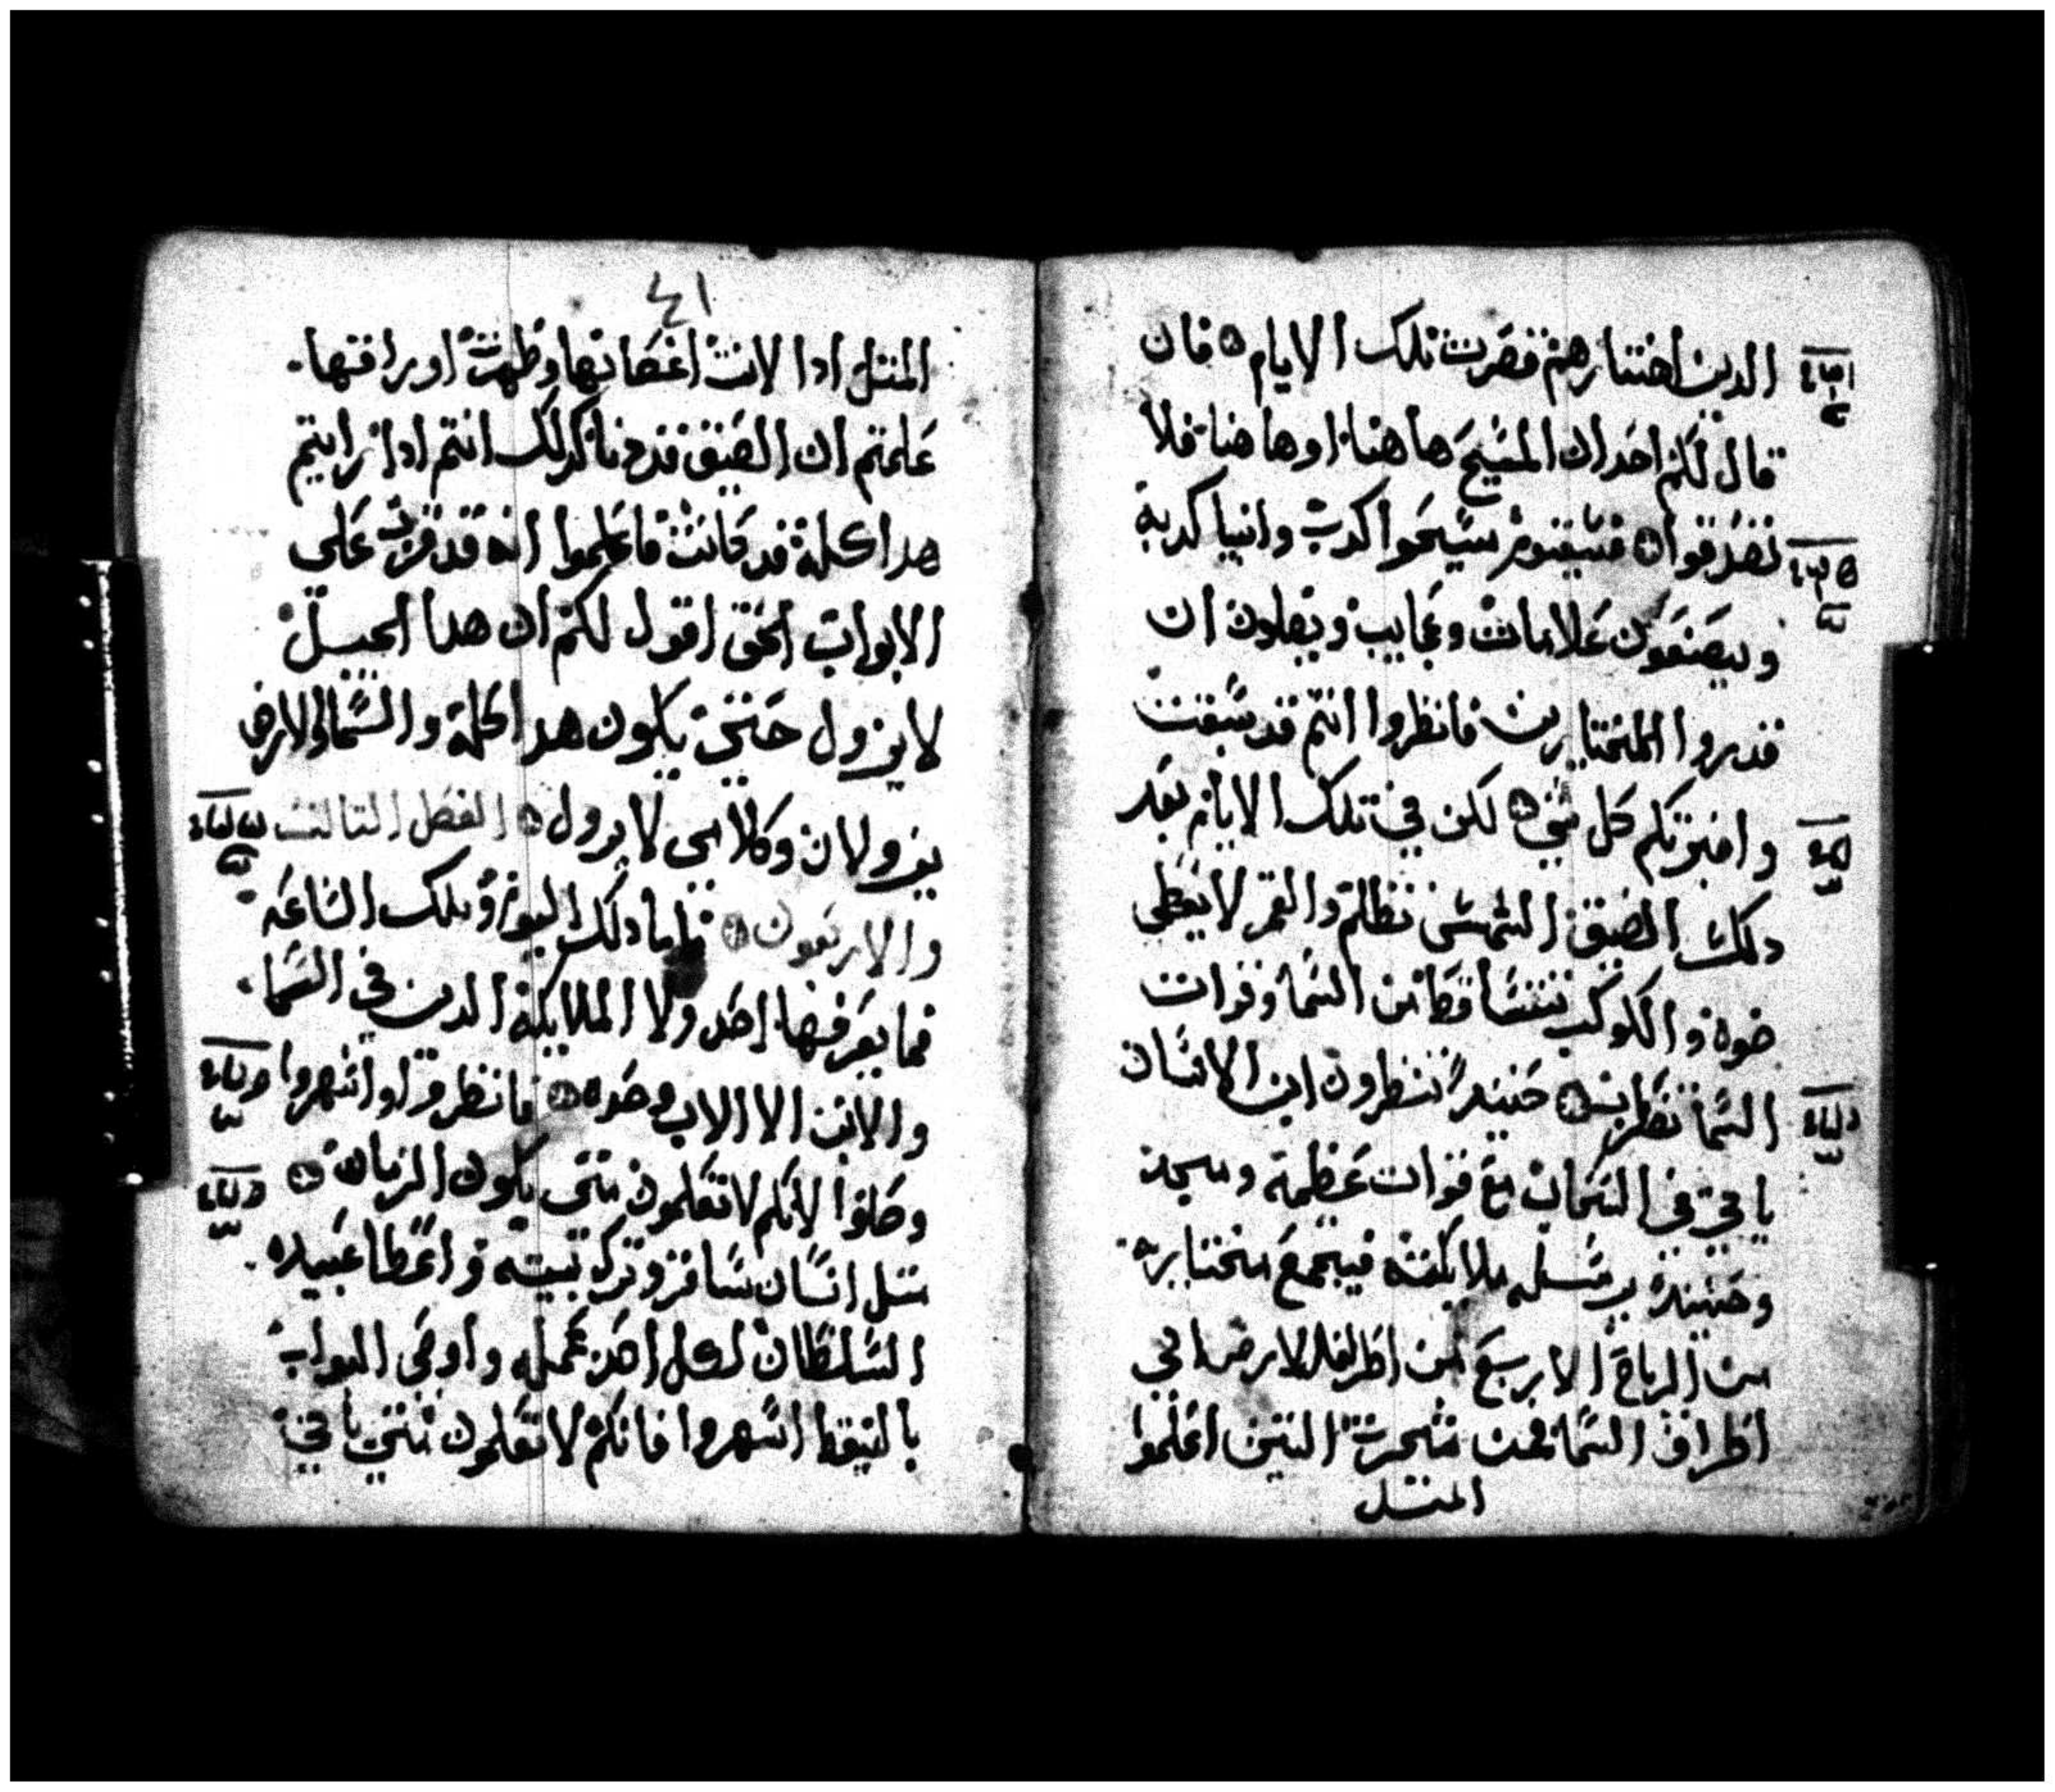 الدين اختارهم قصرت تلك الايام فان
قال لكم احد ان المسيح هاهنا او هاهنا فلا
تصدقوا فسيقوم مسيحوا كدب وانبيا كدبة
ويصنعون علامات وعجايب ويضلون ان
قدروا المختارين فانظروا انتم قد سبقت
واخبرتكم كل شي لكن في تلك الايام بعد
دلك الضيق الشمس تظلم والقمر لا يعطي
ضوه والكوكب تتساقط من السما وقوات
السما تضطرب حينيد تنظرون ابن الانسان
ياتي في السحاب مع قوات عظيمة ومجد
وحينيد يرسل ملايكته فيجمع مختاريه
من الرياح الاربع من اطراف الارض الي
اطراف السما فمن شجرت التين اعلموا
المتل
٤١
المتل ادا لانت اغصانها وظهرت اوراقها
علمتم ان الصيف قد دنا كدلك انتم ادا رايتم
هدا كله قد كانت فاعلموا انه قد قرب علي
الابواب الحق اقول لكم ان هدا الجيل
لا يزول حتي يكون هدا كله والسما والارض
يزولان وكلامي لا يزول الفصل التالت
والاربعون فاما دلك اليوم وتلك الساعه
فما يعرفها احد ولا الملايكة الدين في السما
والابن الا الاب وحده فانظروا واسهروا
وصلوا لانكم لا تعلمون متي يكون الزمان
متل انسان سافر وترك بيته واعطا عبيده
السلطان لكل احد عمله واوصي البواب
بالتيقظ اسهروا فانكم لا تعلمون متي ياتي